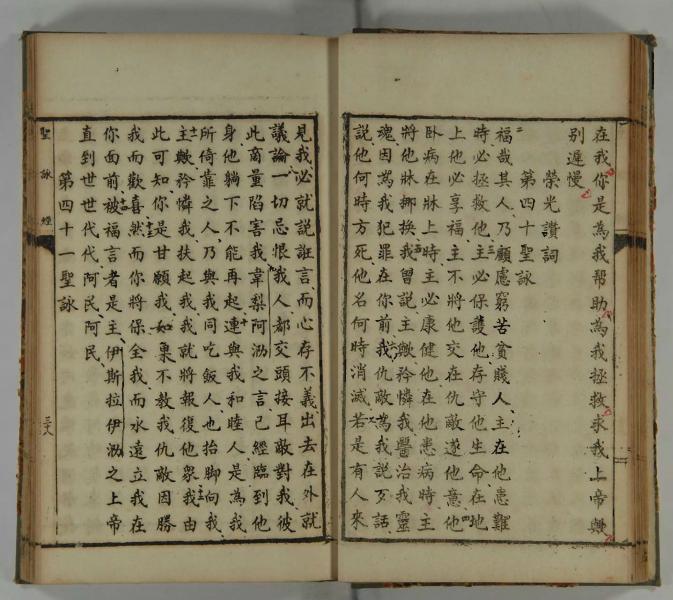 在我你是為我帮助為我拯救求我上帝無
別遲慢
榮光讃詞
第四十聖詠
福哉其人乃顧慮窮苦貧賤人主在他患難
時必拯救他主必保護他存守他生命在地
上他必享福主不將他交在仇敵遂他意他
卧病在牀上時主必康健他在他患病時主
將他牀挪換我曾說主歟矜憐我醫治我靈
魂因為我犯罪在你前我仇敵為我說歹話
說他何時方死他名何時消滅若是有人來
見我必就說誑言而心存不義出去在外就
議論一切忌恨我人都交頭接耳敵對我彼
此商量陷害我韋梨阿泐之言已經臨到他
身他躺下不能再起連與我和睦人是為我
所倚靠之人乃與我同吃飯人也抬脚向我
主歟矜憐我扶起我我就將報復他衆我由
此可知你是甘願我如果不教我仇敵因勝
我而歡喜然而你將保全我而永遠立我在
你面前被福言者是主伊斯拉伊泐之上帝
直到世世代代阿民阿民
第四十一聖詠
聖詠經
三十八